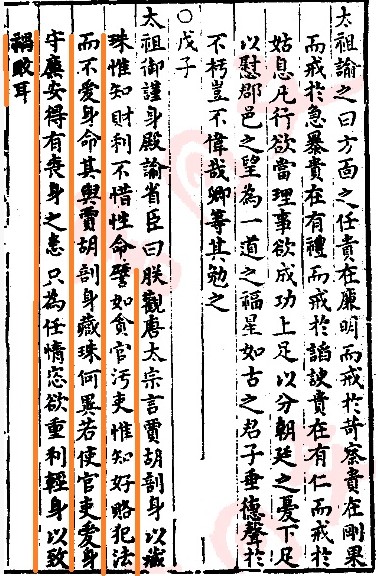 太祖諭之曰方面之任貴在廉明而戒於苛察貴在剛果
而戒於急暴貴在有禮而戒於謟諛貴在有仁而戒於
姑息凡行欲當理事欲成功上足以分朝廷之憂下足
以慰郡邑之望為一道之福星如古之君子垂德聲於
不朽豈不偉哉卿等其勉之
○戊子
太祖御謹身殿諭省臣曰朕觀唐太宗言賈胡剖身以藏
珠惟知財利不惜性命譬如貪官污吏惟知好賂犯法
而不愛身命其與賈胡剖身藏珠何異若使官吏愛身
守廉安得有喪身之患只為任情恣欲重利輕身以致
禍敗耳